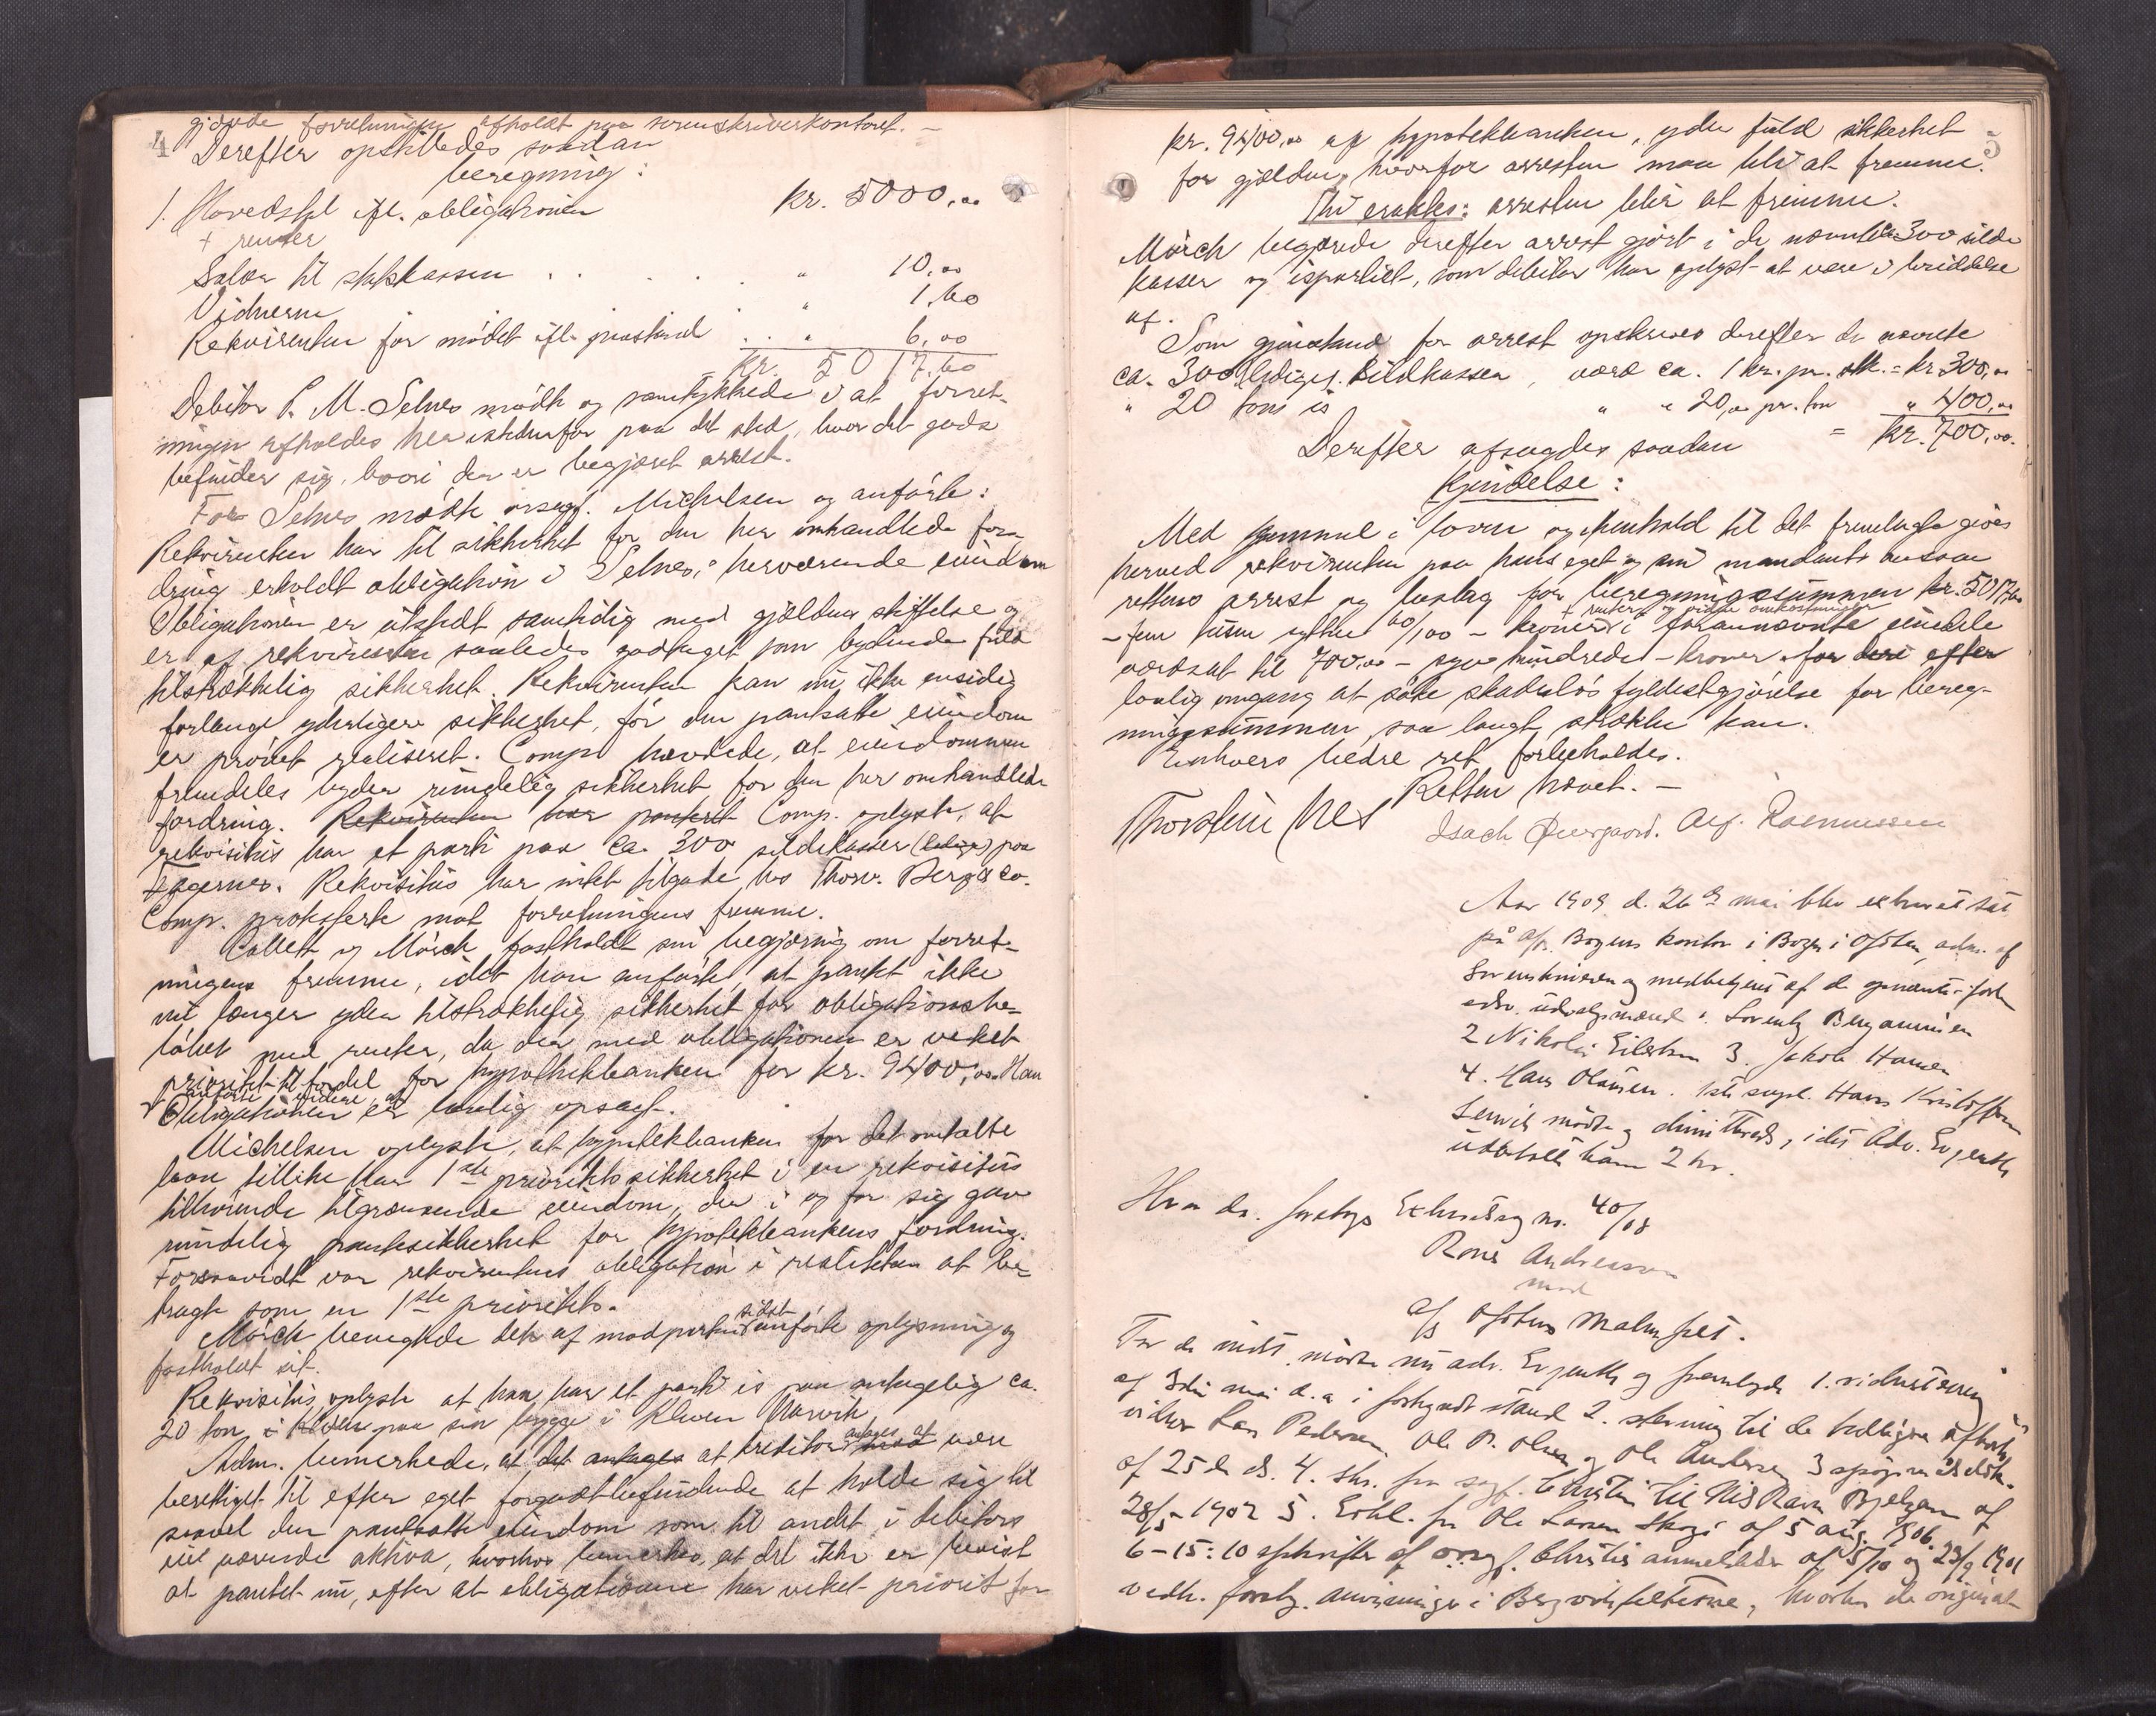 4
gjorde forretningen afholdt paa sorenskriverkontoret. –
Derefter opstilledes saadan
beregning:
1. Hovedstol ifl. obligationen kr. 5000,00
+ renter
Salær til statskassen . . . . " 10,00
Vidnerne " 1,60
Rekvirenten for mødet ifl. paastand . . " 6,00
kr. 5017,60
Debitor P. M. Selnes mødte og samtykkede i at forret-
ningen afholdes her istedenfor paa det sted, hvor det gods
befinder sig, hvori der er begjæret arrest.
For Selnes mødte orsagf. Michelsen og anførte:
Rekvirenten har til sikkerhet for den her omhandlede for-
dring erholdt obligation i Selnes, herværende eiendom
Obligationen er utstedt samtidig med gjældens stiftelse og
er af rekvirenten saaledes godtaget som bydende fuld
tilstrækkelig sikkerhet. Rekvirenten kan nu ikke ensidig
forlange yderligere sikkerhet, før den pantsatte eiendom
er prøvet realiseret. Comp. hævdede, at eiendommen
fremdeles byder rimelig sikkerhet for den her omhandlede
fordring. Rekvirenten har panteret Comp. oplyste, at
rekvisitus har et parti paa ca. 300 sildekasser (ledige) paa
Fagernes. Rekvisitus har intet tilgode hos Thorv. Berg & Co.
Comp. protesterte mot forretningens fremme.
Collett og Mörch fastholdt sin begjæring om forret-
ningens fremme, idet han anførte, at pantet ikke
nu længer yder tilstrækkelig sikkerhet for obligationsbe-
løbet med renter, da der med obligationen er veket
prioritet til fordel for hypothekbanken for kr. 9400,00. Han
anførte videre, at
Obligationen er lovlig opsagt.
Michelsen oplyste, at hypotekbanken for det omtalte
laan tillike har 1ste prioritets sikkerhet i en rekvisitus
tilhørende tilgrænsende eiendom, der i og for sig gav
rimelig pantsikkerhet for hypotekbankens fordring.
Forsaavidt var rekvirentens obligation i realiteten at be-
tragte som en 1ste prioritets.
sidst
Mörch benegtede det af modparten anførte oplysning og
fastholdt sit.
Rekvisitus oplyste at han har et parti is paa antagelig ca.
20 ton i paa sin brygge i Narvik
antages at
Adm. bemerkede, at det antages at kreditor være
berettiget til efter eget forgodtbefindende at holde sig til
saavel den pantsatte eiendom som til andet i debitors
eie værende aktiva, hvorhos bemerkes, at det ikke er bevist
at pantet nu, efter at obligationen har veket priorit for
5
kr. 9400,00 af hypotekbanken, yder fuld sikkerhet
for gjælden, hvorfor arresten maa bli at fremme.
Thi eraktes: arresten blir at fremme.
Mörch begjærede derefter arrest gjort i de nævnte ca 300 silde
kasser og ispartiet, som debitor har oplyst at være i besiddelse
af.
Som gjenstand for arrest opskreves derefter de nævnte
ca. 300 ledige sildkasser, værd ca. 1 kr. pr. stk. = kr 300,00
" 20 tons is " " 20,00 pr. ton " 400,00
= kr. 700,00.
Derefter afsagdes saadan
Kjendelse:
Med hjemmel i loven og i henhold til det fremlagte gives
herved rekvirenten paa hans eget og sin mandants ansvar
rettens arrest og beslag for beregningssummen kr. 5017,60
+ renter og videre omkostninger
– fem tusen sytten 60/100 – kroner i forannævnte eiendele
værdsat til 700,00 – syv hundrede – kroner for deri efter
lovlig omgang at søke skadesløs fyldestgjørelse for bereg-
ningssummen, saa langt strække kan.
Enhvers bedre ret forbeholdes.
Retten hævet. –
Thorstein Nes Isach Øvergaard. Alf. Rasmussen
Aar 1909 d. 26de mai blev extraret sat
på a/s. Bogens kontor i Bogen i Ofoten, adm. af
Sorenskriveren og medbetjent af de opnævnte i forh
edsv. udvalgsmænd 1. Lorentz Bergannsen
2 Nikolai Eilertsen 3. Jakob Hansen
4. Hans Olausen. 1ste supl. Hans Kristoffersen
Lenvik mødte og dimitteredes, idet Adv. Evjenth
udbetalte ham 2 kr.
Hvor da. foretoges Extraretssag nr. 40/08
Rones Andreassen
mod
a/s Ofotens Malmfelt.
For de indst. mødte nu adv. Evjenth og fremlagde 1. vidnestevning
af 3die mai d. a i forkyndt stand 2. stevning til de tidligere afhørte
vidner Lars Pedersen, Ole P. Olsen og Ole Andersen 3
af 25de ds. 4. skr. fra sagf. Christie til Nils Ravn Bjelgam af
28/5 1902 5. Erkl. fra Ole Larsen Skogø af 5 aug. 1906.
6–15: 10 afskrifter af orsagf. Christies anmeldelse af 5/10 og 23/9 1901
vedk. forsk. anvisninger i Bergvik feltene, hvorhos de original-